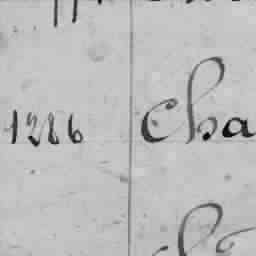 1286 Cha